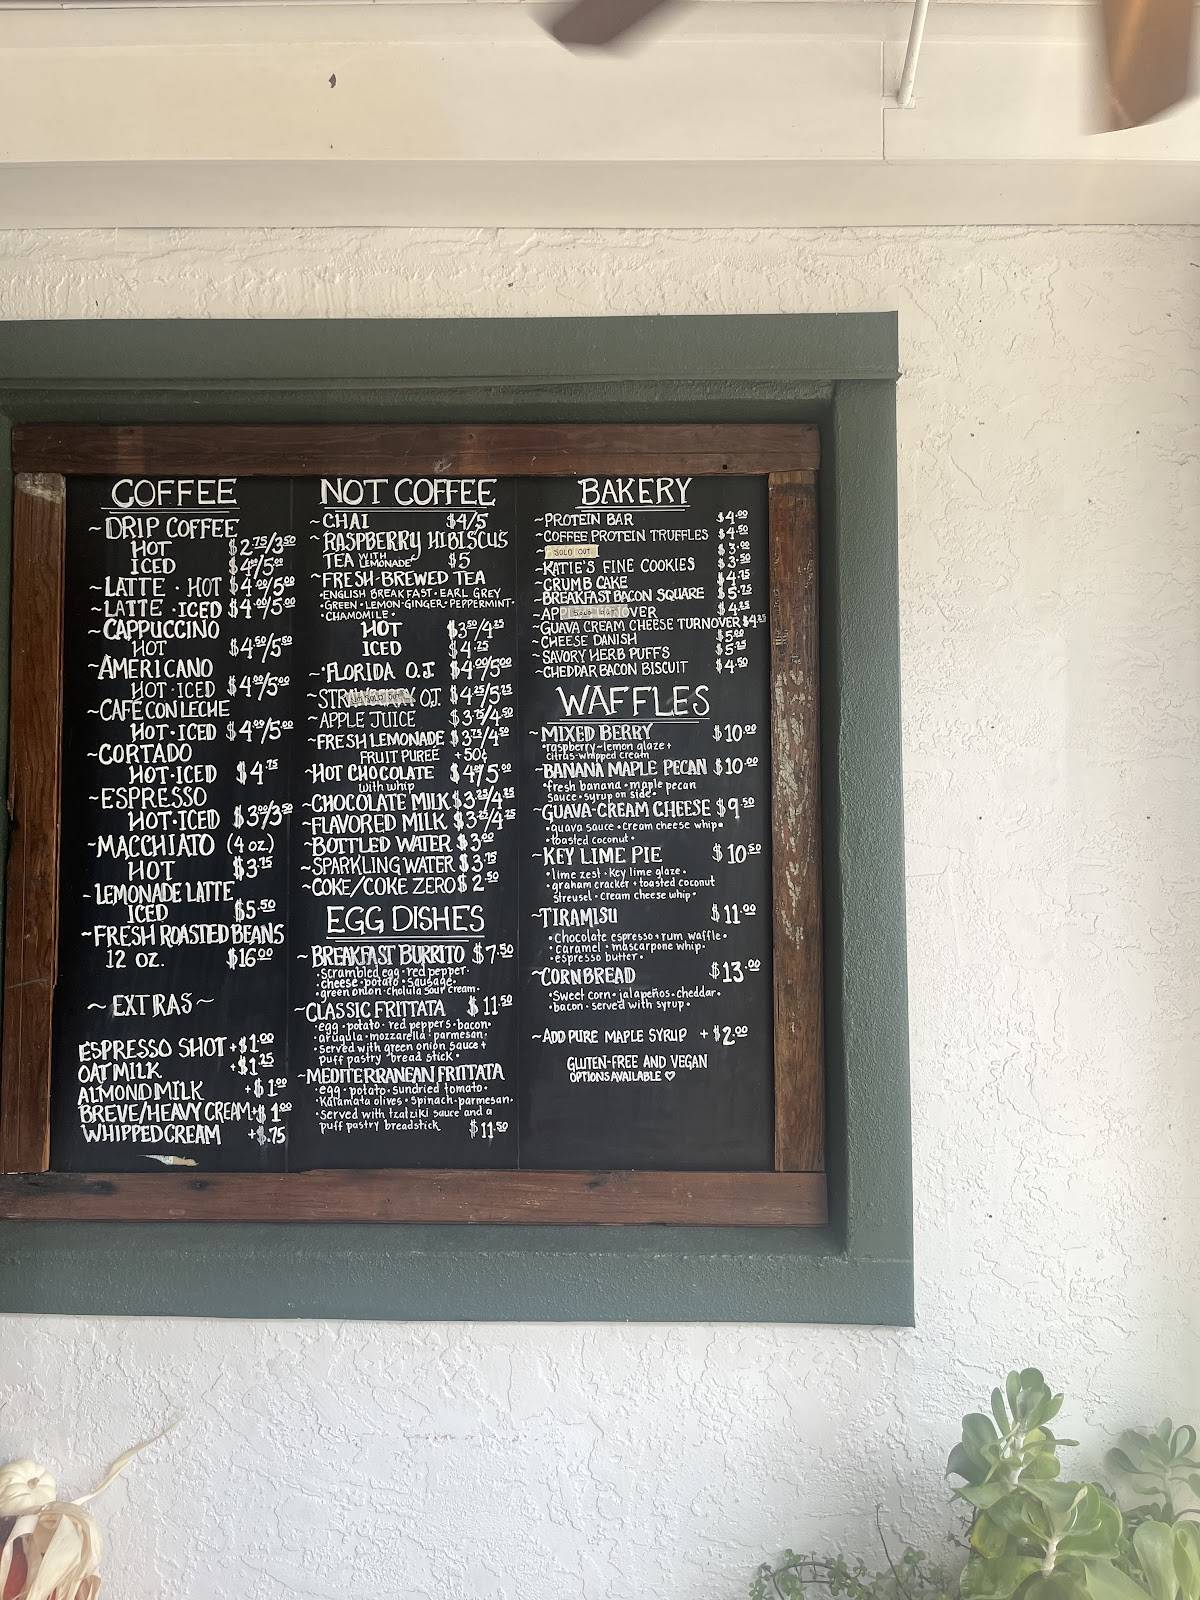 COFFEE
~DRIP COFFEE
HOT $2.75/3.50
ICED $4.00/5.00
~LATTE · HOT $4.00/5.00
~LATTE · ICED $4.00/5.00
~CAPPUCCINO
HOT $4.50/5.50
~AMERICANO
HOT·ICED $4.00/5.00
~CAFÉ CON LECHE
HOT·ICED $4.00/5.00
~CORTADO
HOT·ICED $4.75
~ESPRESSO
HOT·ICED $3.00/3.50
~MACCHIATO (4 oz.)
HOT $3.75
~LEMONADE LATTE
ICED $5.50
~FRESH ROASTED BEANS
12 OZ. $16.00
~ EXTRAS ~
ESPRESSO SHOT +$1.00
OATMILK +$1.25
ALMONDMILK +$1.00
BREVE/HEAVY CREAM +$1.00
WHIPPED CREAM +$.75
NOT COFFEE
~CHAI $4/5
~RASPBERRY HIBISCUS
TEA WITH LEMONADE $5
~FRESH-BREWED TEA
·ENGLISH BREAKFAST·EARL GREY
·GREEN·LEMON·GINGER·PEPPERMINT·
·CHAMOMILE·
HOT $3.50/4.25
ICED $4.25
~FLORIDA O.J. $4.00/5.00
~STRAWBERRY O.J. $4.25/5.25
~APPLE JUICE $3.75/4.50
~FRESH LEMONADE $3.75/4.50
FRUIT PUREE +50¢
~HOT CHOCOLATE $4/5.00
with whip
~CHOCOLATE MILK $3.25/4.25
~FLAVORED MILK $3.25/4.25
~BOTTLED WATER $3.00
~SPARKLING WATER $3.75
~COKE/COKE ZERO $2.50
EGG DISHES
~BREAKFAST BURRITO $7.50
·scrambled egg·red pepper·
·cheese·potato·sausage·
·green onion·cholula sour cream·
~CLASSIC FRITTATA $11.50
·egg·potato·red peppers·bacon·
·arugula·mozzarella·parmesan·
·Served with green onion sauce +
puff pastry bread stick·
~MEDITERRANEAN FRITTATA
·egg·potato·sundried tomato·
·Kalamata olives·spinach·parmesan·
·Served with tzatziki sauce and a
puff pastry breadstick $11.50
BAKERY
~PROTEIN BAR $4.00
~COFFEE PROTEIN TRUFFLES $4.50
~SOLD OUT $3.00
~KATIE'S FINE COOKIES $3.50
~CRUMB CAKE $4.75
~BREAKFAST BACON SQUARE $5.75
~AP SOLD OUT OVER $4.25
~GUAVA CREAM CHEESE TURNOVER $4.25
~CHEESE DANISH $5.00
~SAVORY HERB PUFFS $5.25
~CHEDDAR BACON BISCUIT $4.50
WAFFLES
~MIXED BERRY $10.00
·raspberry-lemon glaze +
citrus whipped cream
~BANANA MAPLE PECAN $10.00
·fresh banana·maple pecan
sauce·syrup on side·
~GUAVA-CREAM CHEESE $9.50
·guava sauce·cream cheese whip·
·toasted coconut·
~KEY LIME PIE $10.50
·lime zest·Key lime glaze·
·graham cracker + toasted coconut
streusel·cream cheese whip·
~TIRAMISU $11.00
·Chocolate espresso+rum waffle·
·caramel·mascarpone whip·
·espresso butter·
~CORNBREAD $13.00
·Sweet corn·jalapeños·cheddar·
·bacon·served with syrup·
~ADD PURE MAPLE SYRUP + $2.00
GLUTEN-FREE AND VEGAN
OPTIONS AVAILABLE ♡